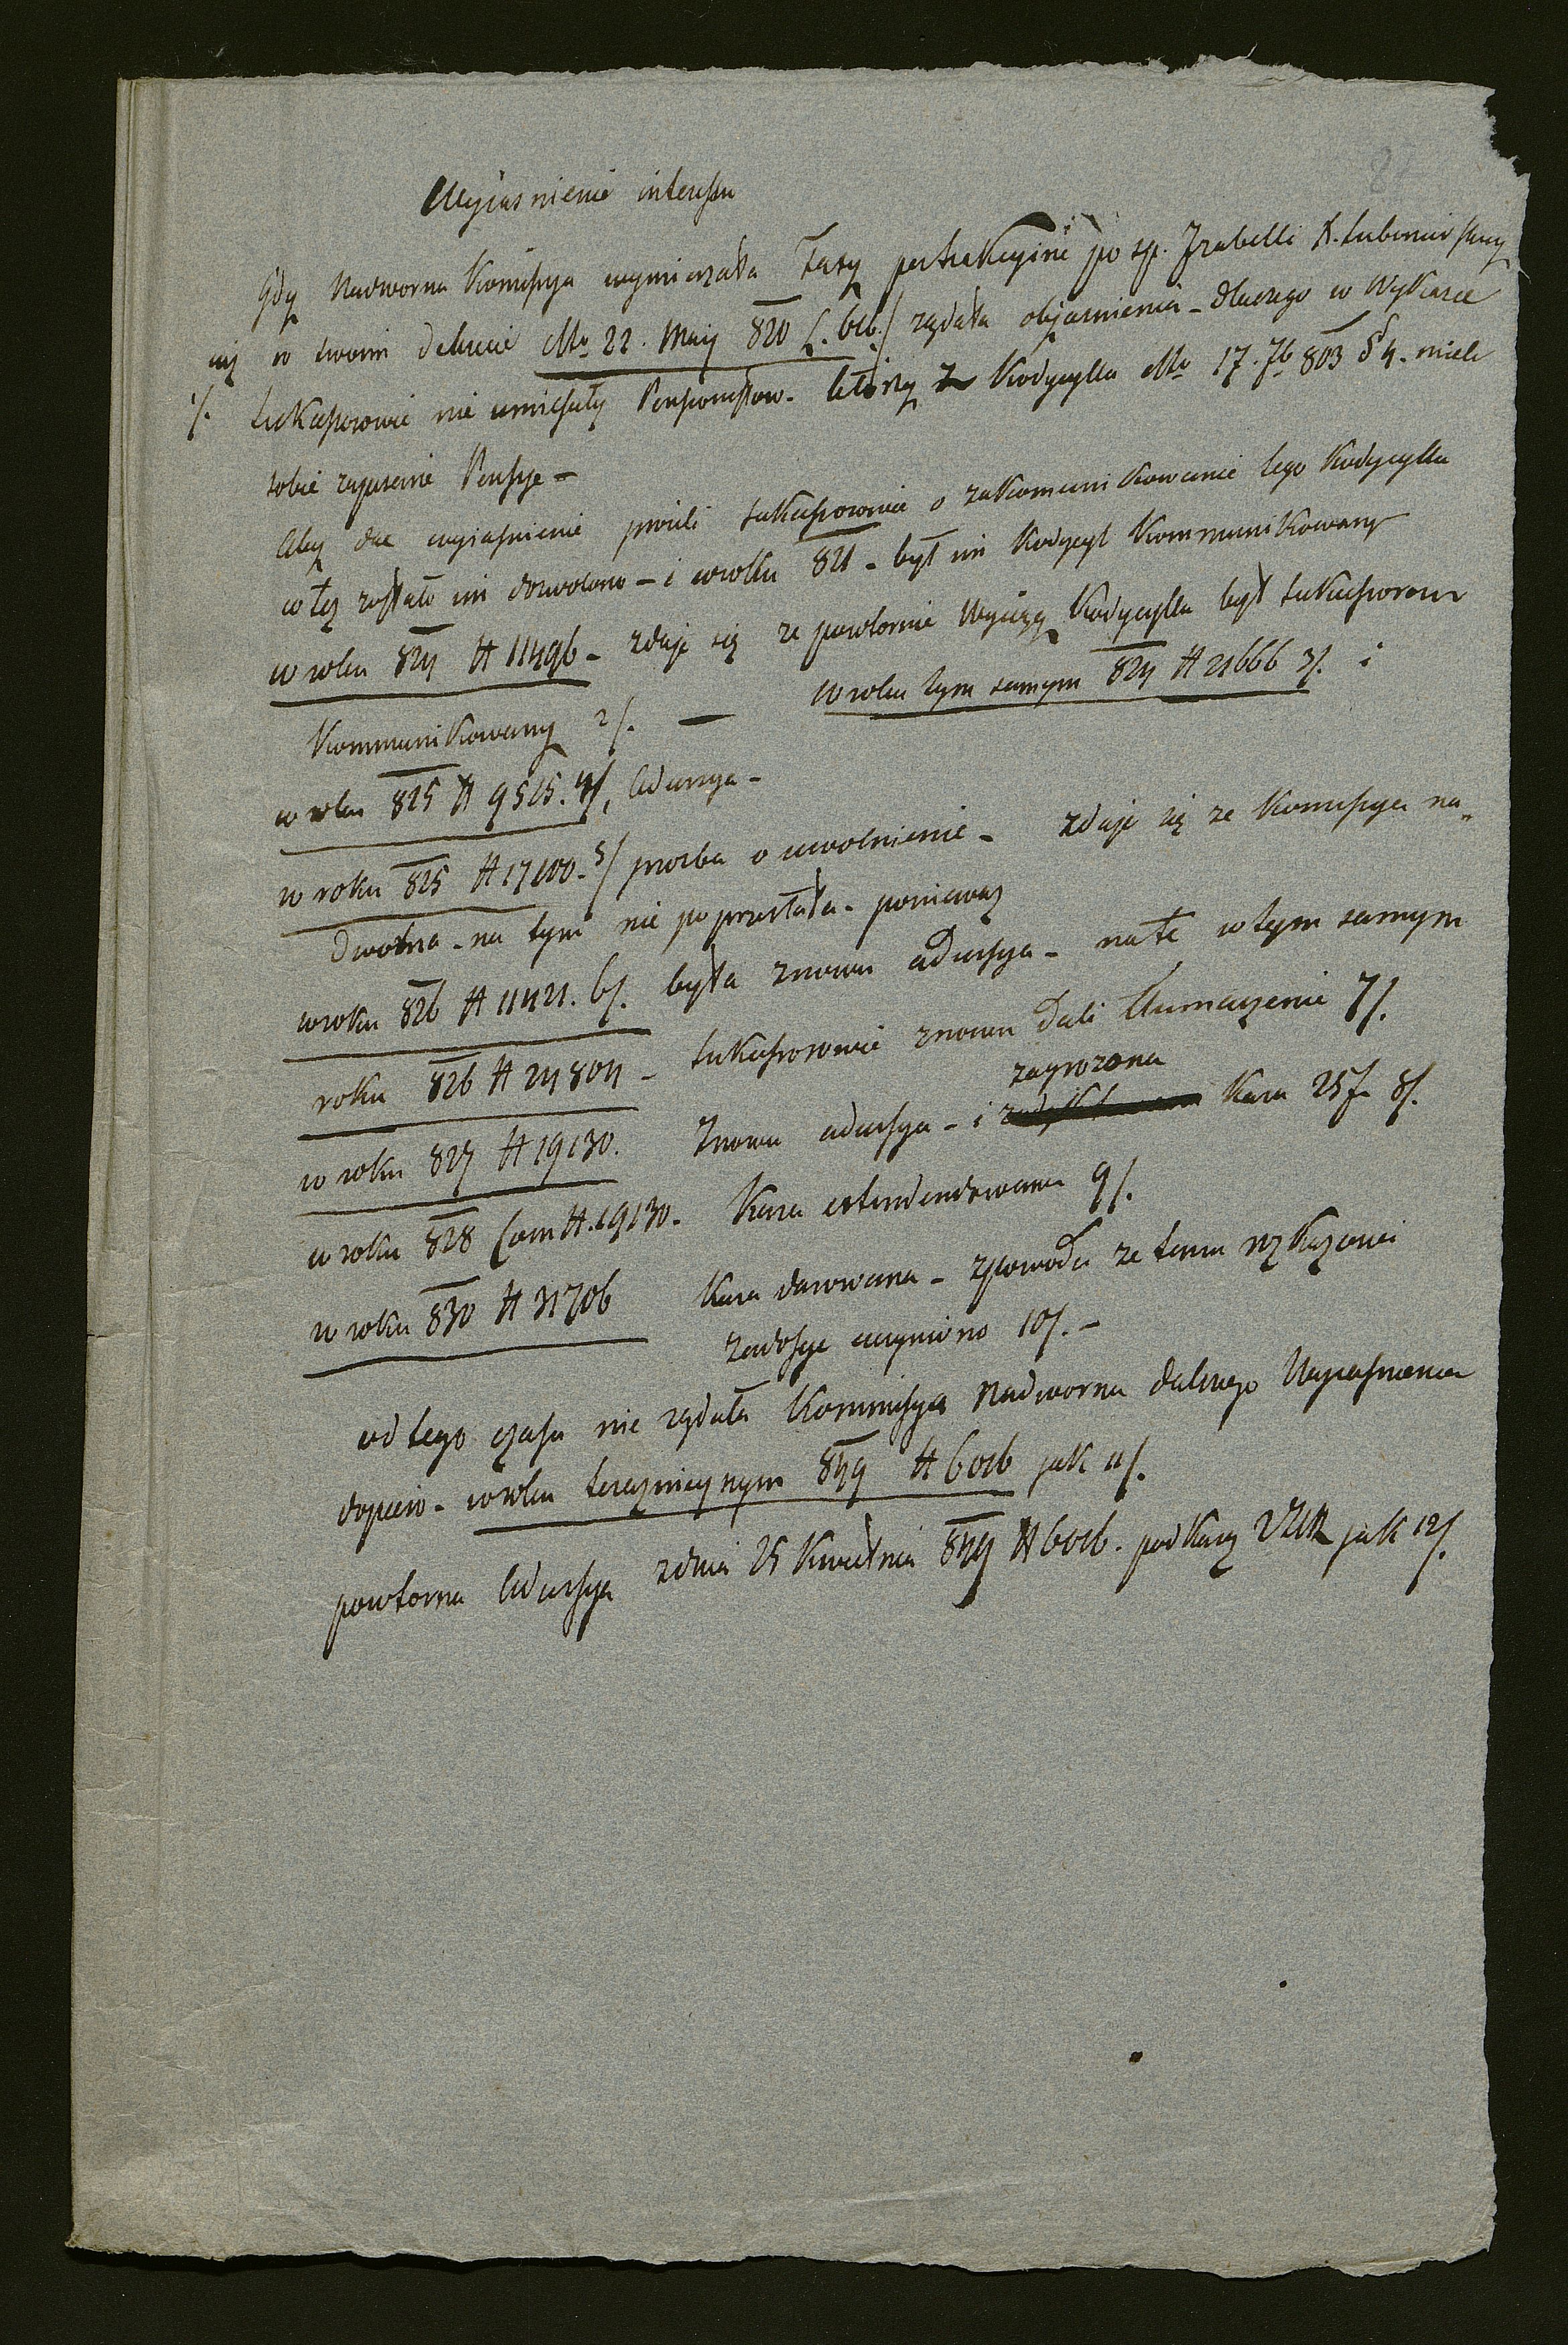 Wyiasnienie interessu
Gdy Nadworna Komissya wymierzała Taxy pertraktacyine po sp. Izabelli X. Lubomirskiey
w swoim dekrecie dtto 22. Maij 820 rządała obiasnienia - dlaczego w Wykazie
1/. Lukaszowie nie umiescili Pensyonistow. którzy z Kodycylla dtto 17. 7b 803 § 4. mieli
sobie zapisane Pensye -
Aby dac wyiasnienie prosili Lukaszowie o zakomunikowanie tego Kodycylla
co też zostało im dozwolono - i w roku 821 - był im Kodycyl Kommunikowany
w roku 824 # 11496 - zdaje się ze powtornie Wyciąg Kodycylla był Lukaszowom
Kommunikowany 2/. — w roku tym samym 824 # 21666 3/. i
w roku 825 # 9515. 4/. Adursya -
w roku 825 # 17100. 5/ prozba o uwolnienie - zdaje się ze Komissya na„
dworna - na tym nie poprzestała - poniewaz
w roku 826 # 11421. 6/. była znowu adursya - na te w tym samym
roku 826 # 24804 - Lukaszowie znowu dali tłumaczenie 7/.
zagrozona
w roku 827 # 19130. Znowu adursya - i kara 25 f 8/.
w roku 828 # 19130. Kara 9/.
w roku 830 # 31706 Kara darowana - z powodu ze temu
zadosyc uczyniono 10/. -
od tego czasu nie rządała Kommissya Nadworna dalszego Wyiasnienia
dopiero - w roku terazniejszym 849 # 6016 jak 11/.
powtorna Adursya z dnia 25 Kwietnia 849 # 6016. pod karą jak 12/.